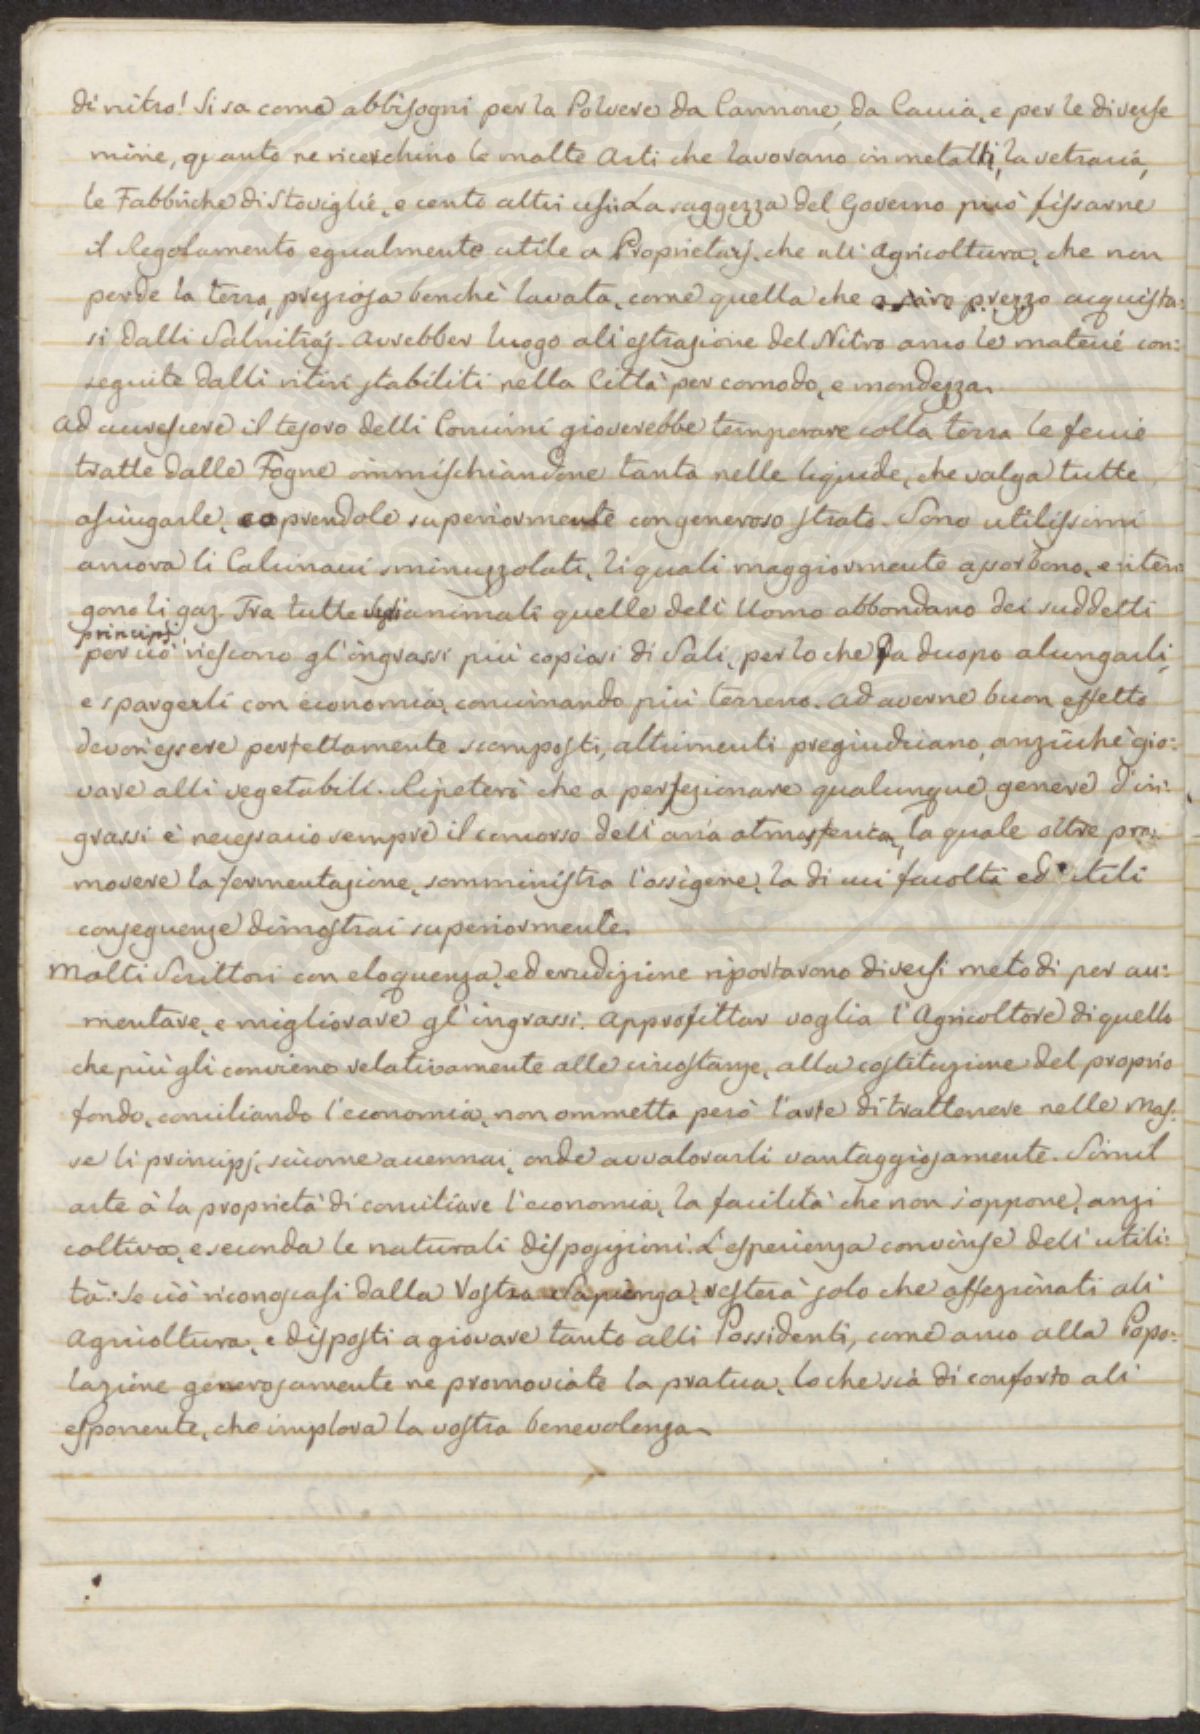 di nitro! Si sa come abbisogni per la Polvere da Cannone, da Caccia, e per le diverse
mine, quanto ne ricerchino le molte Arti che lavorano in metalli, la vetraria,
le Fabbriche di Stoviglie, e cento altri usi: La saggezza del Governo può fissarne
il Regolamento egualmente utile a Proprietarj, che all' Agricoltura, che non
perde la terra, preziosa benchè lavata, come quella che a caro prezzo acquista:
si dalli Salnitraj. Avrebber luogo all' estrazione del Nitro anco le materie con:
seguite dalli ritiri stabiliti nella Città per comodo, e mondezza.
Ad accrescere il tesoro delli Concimi gioverebbe temperare colla terra le feccie
tratte dalle Fogne immischiandone tanta nelle liquide, che valga tutte
asciugarle, coprendole superiormente con generoso strato. Sono utilissimi
ancora li Calcinacci sminuzzolati, li quali maggiormente assorbono, e riten:
gono li gaz. Fra tutte animali quelle dell' Uomo abbondano dei suddetti
principj
perciò riescono gl' ingrassi più copiosi di Sali, per lo che fa duopo alungarli,
e spargerli con economia, concimando più terreno. Ad averne buon effetto
devon essere perfettamente scomposti, altrimenti pregiudicano, anzichè gio:
vare alli vegetabili. Ripeterò che a perfezionare qualunque genere d' in:
grassi è necessario sempre il concorso dell' aria atmosferica, la quale oltre pro:
movere la fermentazione, somministra l'ossigene, la di cui facoltà ed utili
conseguenze dimostrai superiormente.
Molti Scrittori con eloquenza, ed erudizione riportarono diversi metodi per au:
mentare, e migliorare gl' ingrassi. Approfittar voglia l' Agricoltore di quello
che più gli conviene relativamente alle circostanze, alla costituzione del proprio
fondo, conciliando l'economia, non ommetta però l'arte di trattenere nelle Mas:
se li principj, siccome accennai, onde avvalorarli vantaggiosamente. Simil
arte à la proprietà di conciliare l'economia, la facilità che non s'oppone, anzi
coltiva, e seconda le naturali disposizioni. L'esperienza convinse dell' utili:
tà: Se ciò riconoscasi dalla Vostra Sapienza, resterà solo che affezionati all'
Agricoltura, e disposti a giovare tanto alli Possidenti, come anco alla Popo:
lazione generosamente ne promoviate la pratica, lo che sia di conforto all'
esponente, che implora la vostra benevolenza.